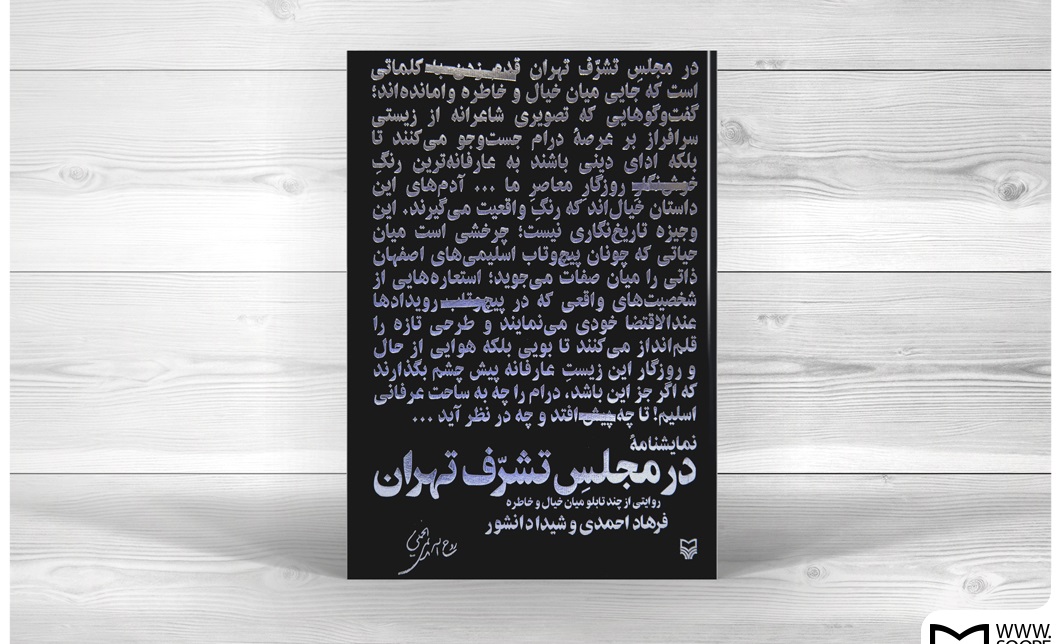 در مجلسِ تشرّف تهران قدم زدن با کلماتی
است که جایی میان خیال و خاطره وامانده‌اند؛
گفت‌وگوهایی که تصویری شاعرانه از زیستی
سرافراز بر عرصهٔ درام جست‌وجو می‌کنند تا
بلکه ادای دینی باشند به عارفانه‌ترین رنگِ
روزگارِ معاصرِ ما ... آدم‌های این
داستان خیال‌اند که رنگِ واقعیت می‌گیرند. این
وجیزه تاریخ‌نگاری نیست؛ چرخشی است میان
حیاتی که چونان پیچ‌وتاب اسلیمی‌های اصفهان
ذاتی را میان صفات می‌جوید؛ استعاره‌هایی از
شخصیت‌های واقعی که در پیچ‌وتاب رویدادها
عندالاقتضا خودی می‌نمایند و طرحی تازه را
قلم‌انداز می‌کنند تا بویی بلکه هوایی از حال
و روزگار این زیستِ عارفانه پیش چشم بگذارند
که اگر جز این باشد، درام را چه به ساحت عرفانی
اسلیم! تا چه پیش افتد و چه در نظر آید ...
نمایشنامهٔ
در مجلسِ تشرّف تهران
روایتی از چند تابلو میان خیال و خاطره
فرهاد احمدی و شیدا دانشور
WWW